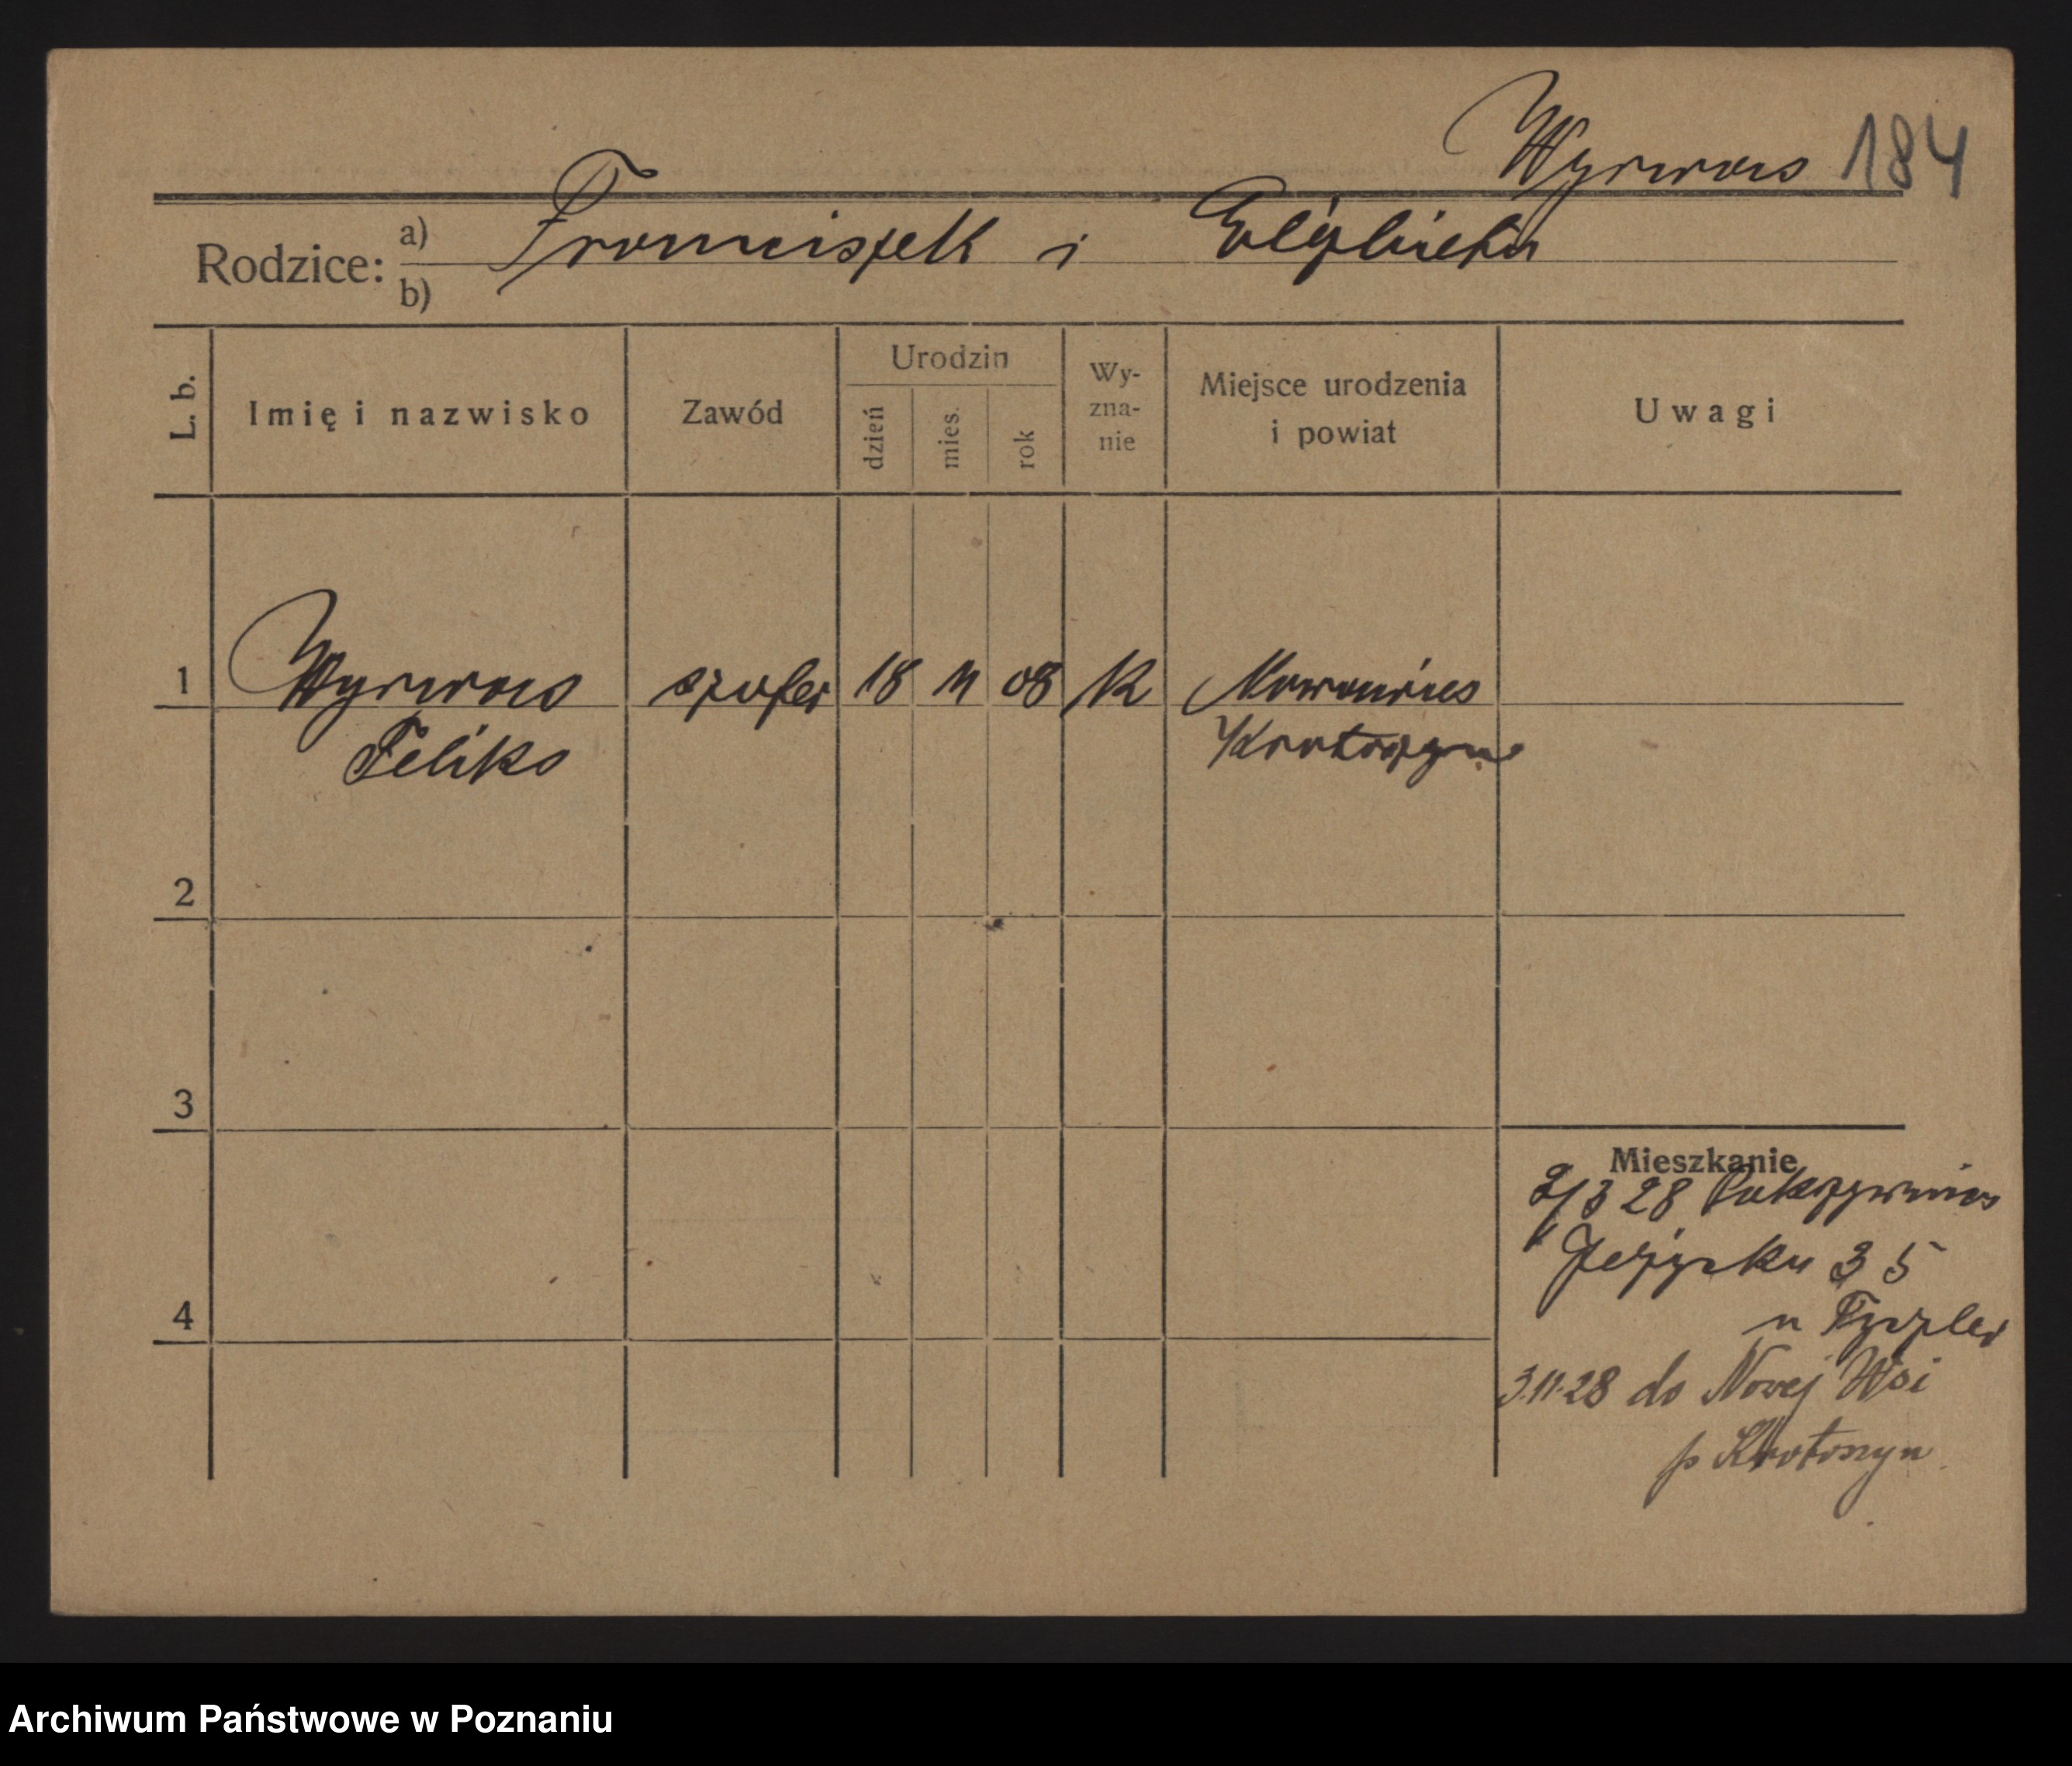 Wyrwas 184
Rodzice: a) b) Franciszek i Elżbieta
L. b. Imię i nazwisko Zawód Urodzin dzień mies. rok Wy-zna-nie Miejsce urodzenia i powiat Uwagi
1 Wyrwas szofer 18 11 08 K
Feliks Krotoszyn
2
3
Mieszkanie
2/3 28 Pokrzywnica
35
4
3.11.28 do Nowej Wsi
p Krotoszyn
Archiwum Państwowe w Poznaniu